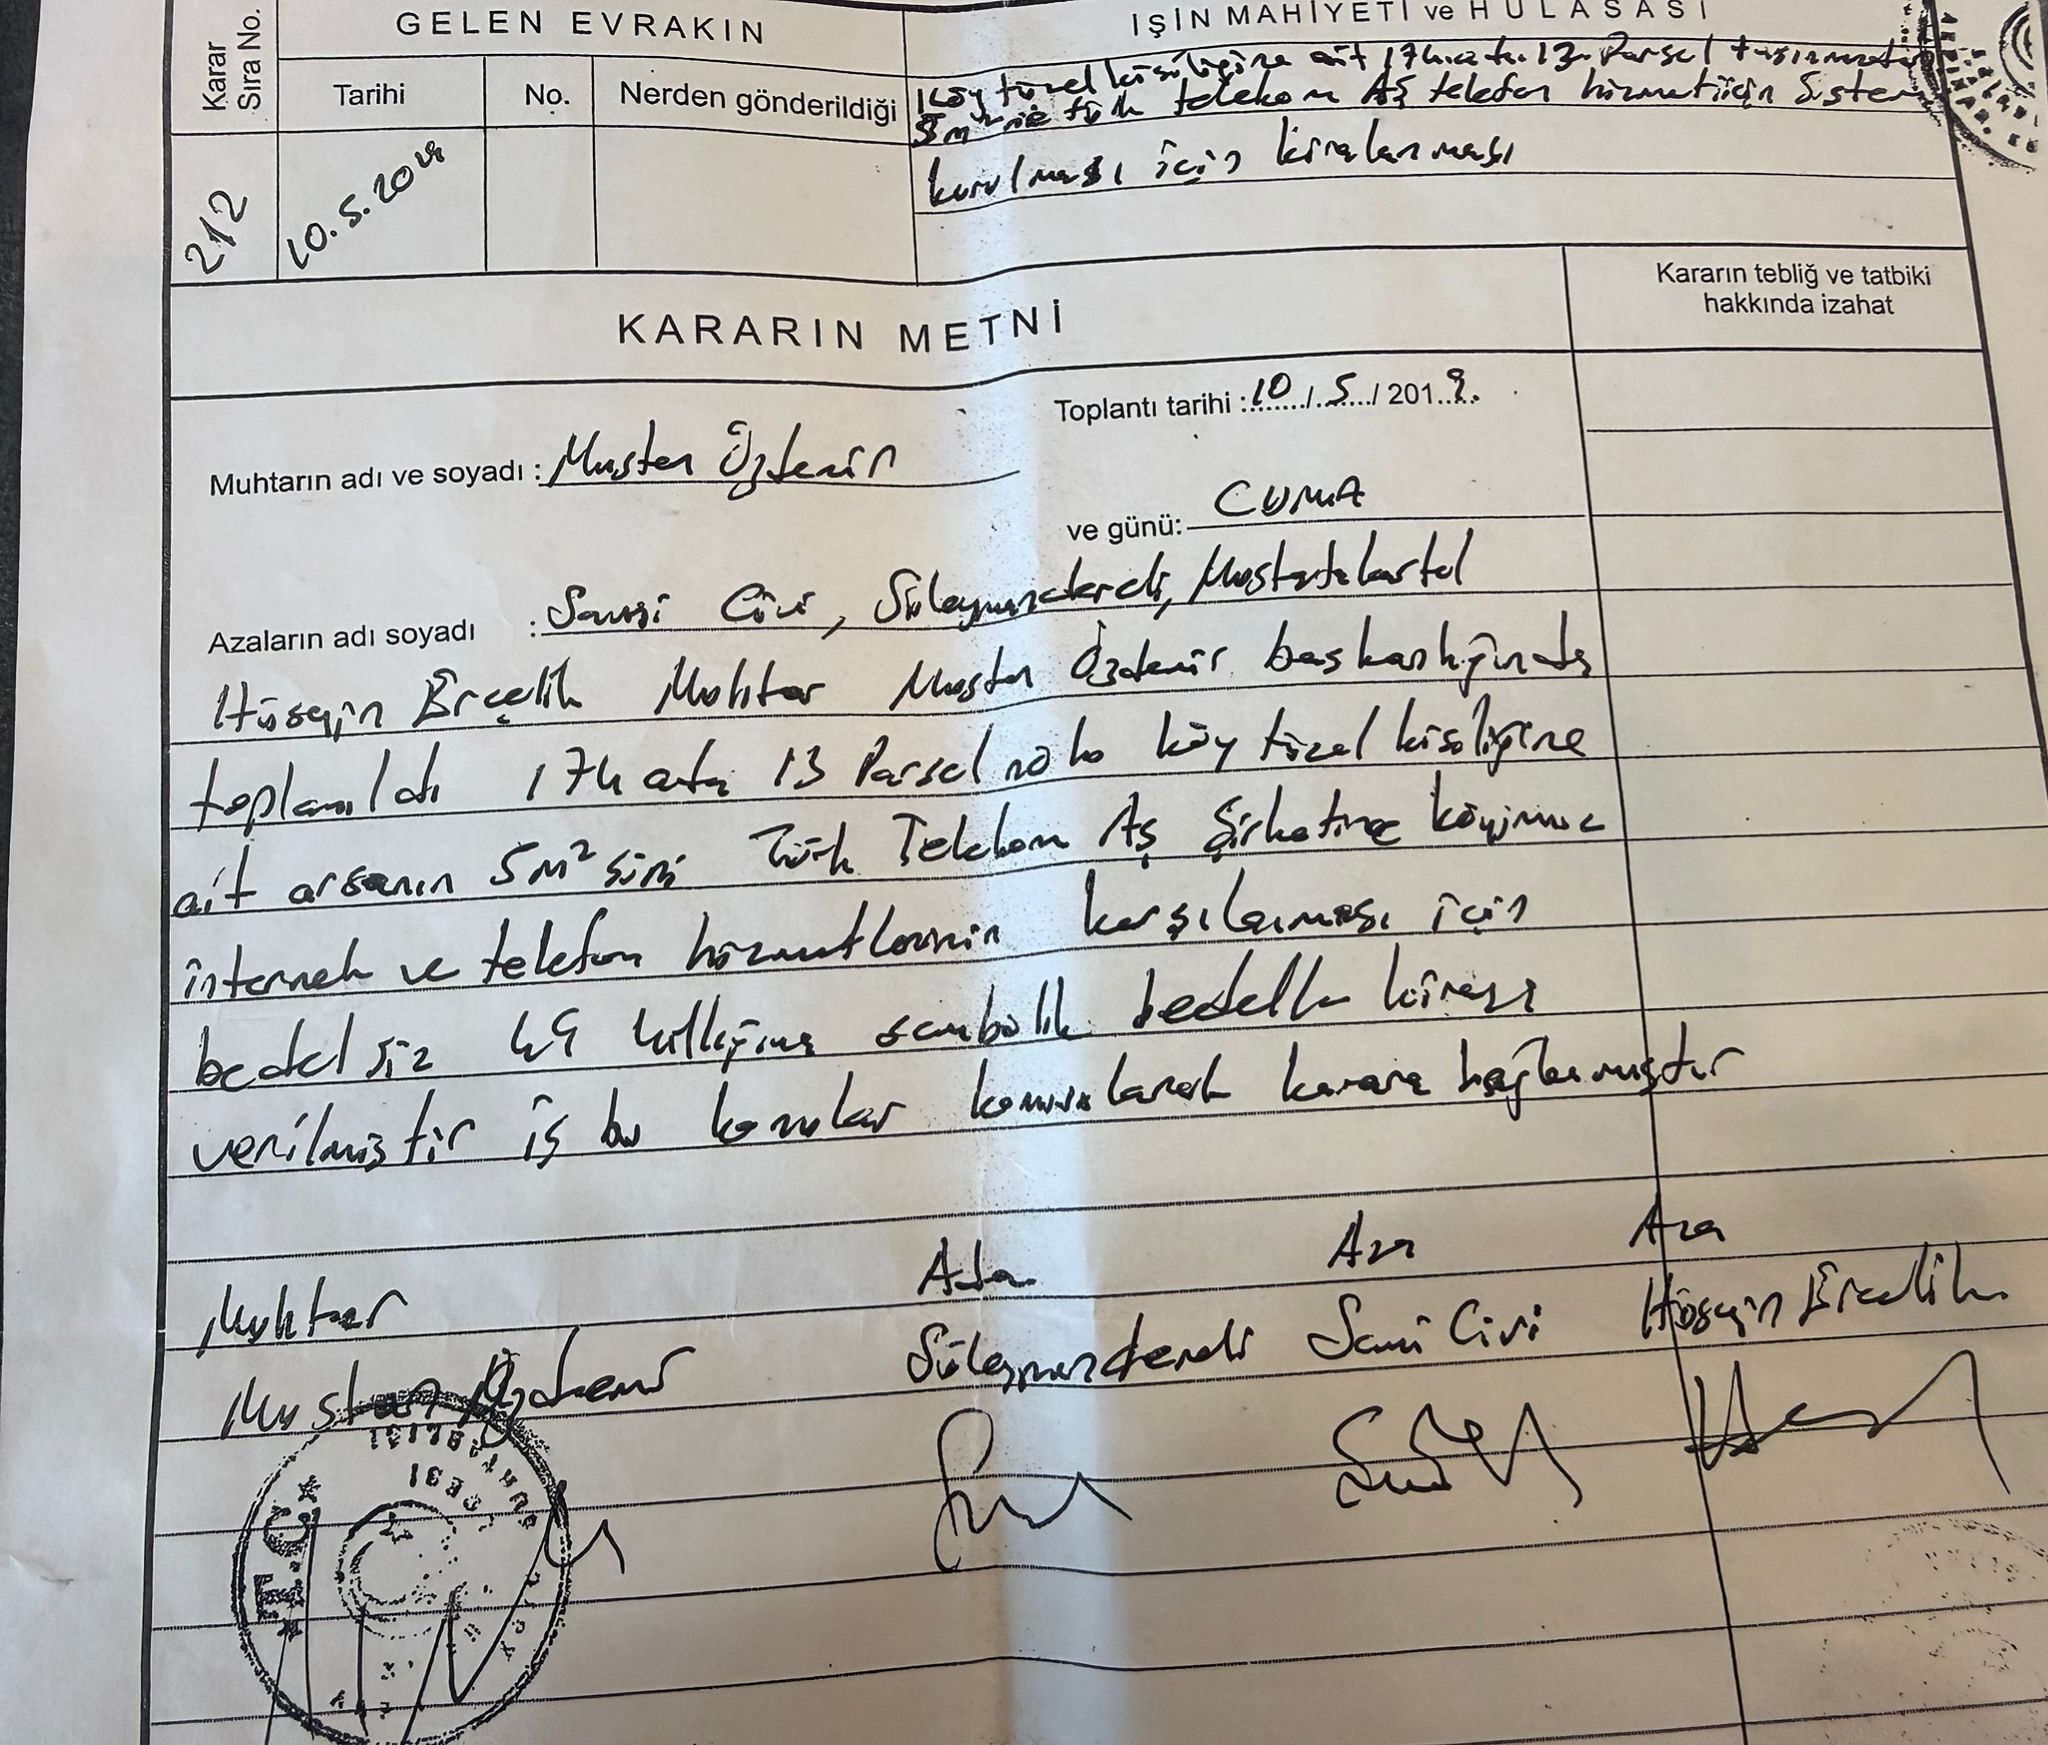 GELEN EVRAKIN
İŞİN MAHİYETİ ve HULASASI
Karar Sıra No.
Tarihi No. Nerden gönderildiği
Köy tüzel kişiliğine ait 174 ada 13 Parsel
5m² Türk telekom AŞ telefon hizmeti için Sistem
kurulması için kiralanması
212 10.5.2019
KARARIN METNİ
Kararın tebliğ ve tatbiki
hakkında izahat
Toplantı tarihi : 10 / 5 / 2019.
Muhtarın adı ve soyadı : Mustan Özdemir
ve günü: CUMA
Azaların adı soyadı : Sami Civi, Süleyman
Hüseyin Erçelik Muhtar Mustan Özdemir başkanlığında
toplanıldı 174 ada 13 Parsel nolu köy tüzel kişiliğine
ait arsanın 5m² sini Türk Telekom AŞ Şirketine köyümüz
internet ve telefon hizmetlerinin karşılanması için
bedelsiz 49 yıllığına sembolik bedelle kiraya
verilmiştir iş bu konular konuşularak karara bağlanmıştır
Aza Aza Aza
Muhtar
Süleyman Sami Civi Hüseyin Erçelik
Mustan Özdemir
T.C.